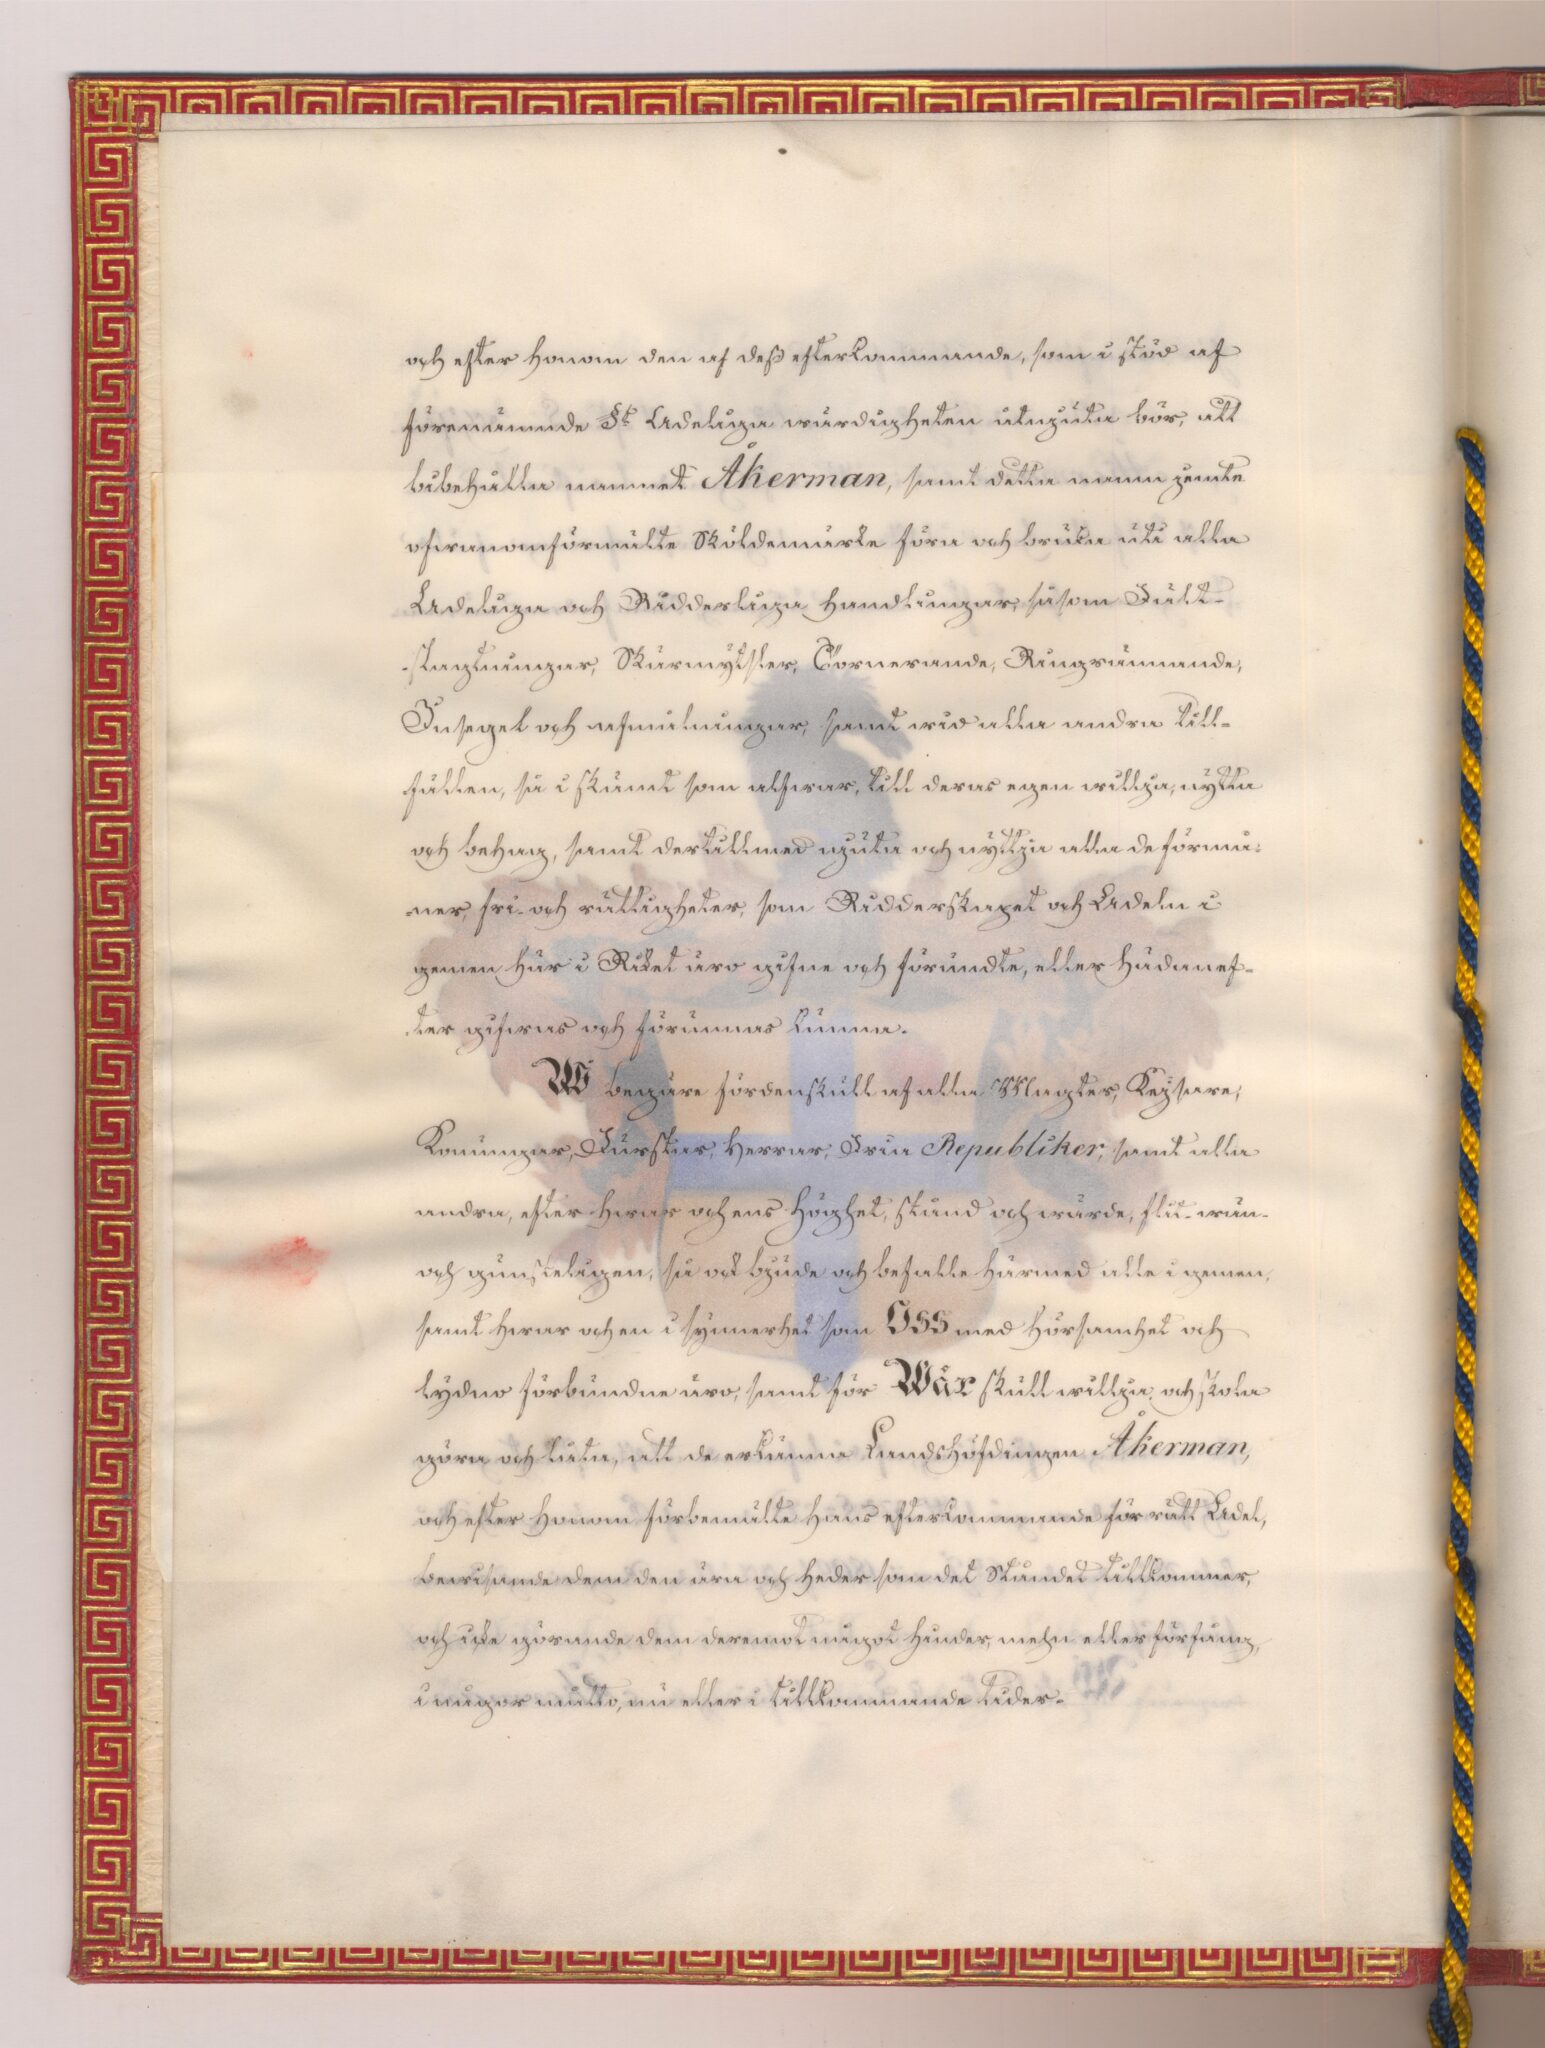 och efter honom den af deß efterkommande, som i stöd af
förenämnde §t Adeliga wärdigheten åtnjuta bör, att
bibehålla namnet Åkerman, samt detta namn jemte
ofwananförmälte Sköldemärke föra och bruka uti alla
Adeliga och Ridderliga handlingar, såsom Fält-
slagtningar, Skärmytsler, Tornerande, Ringrännande,
Insegel och afmålningar, samt wid alla andra till-
fällen, så i skämt som alfwar, till deras egen willja, nytta
och behag, samt dertillmed njuta och nyttja alla de förmå-
ner, fri- och rättigheter, som Ridderskapet och Adeln i
gemen här i Riket äro gifne och förundte, eller hädanef-
ter gifwas och förunnas kunna.
Wi begäre fördenskull af alla Magter, Keijsare,
Konungar, Furstar, Herrar, Fria Republiker, samt alla
andra, efter hwars och ens höghet, stånd och wärde, flit- wän-
och gunsteligen, så ock bjude och befalle härmed alle i gemen,
samt hwar och en i synnerhet som OSS med hörsamhet och
lydno förbundne äro, samt för Wår skull willja och skola
göra och låta, att de erkänna Landshöfdingen Åkerman,
och efter honom förbemälte hans efterkommande för rätt Adel,
bewisande dem den ära och heder som det Ståndet tillkommer,
och icke görande dem deremot något hinder, mehn eller förfång,
i någor måtto, nu eller i tillkommande tider.